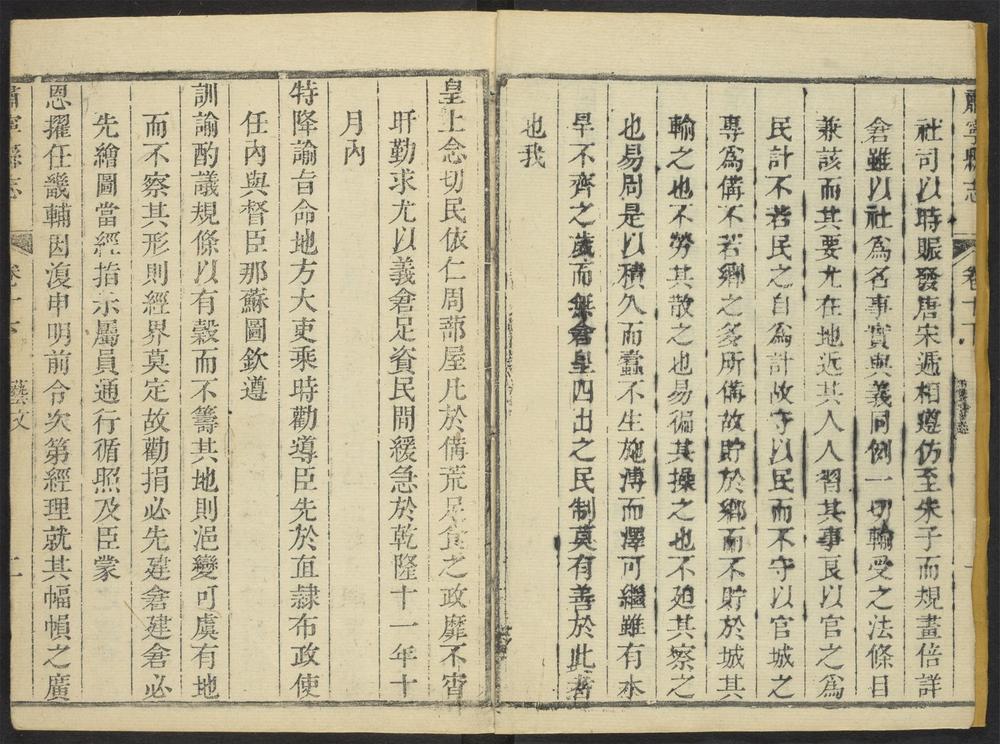 肅寧縣志 卷十下
社司以時賑發唐宋遞相遵仿至朱子而規畫倍詳
倉雖以社爲名事實與義同例一切輸受之法條目
兼該而其要尤在地近其人人習其事良以官之爲
民計不若民之自爲計故守以民而不守以官城之
專爲備不若鄉之多所備故貯於鄉而不貯於城其
輸之也不勞其散之也易徧其操之也不廹其察之
也易周是以積久而蠹不生施溥而澤可繼雖有水
旱不齊之歲而無倉皇四出之民制莫有善於此者
也我
皇上念切民依仁周蔀屋凡於備荒足食之政靡不宵
旰勤求尤以義倉足資民間緩急於乾隆十一年十
月內
特降諭旨命地方大吏乘時勸導臣先於直隸布政使
任內與督臣那蘇圖欽遵
訓諭酌議規條以有穀而不籌其地則浥變可虞有地
而不察其形則經界莫定故勸捐必先建倉建倉必
先繪圖當經指示屬員通行循照及臣蒙
恩擢任畿輔因復申明前令次第經理就其幅幀之廣
肅寧縣志 卷十下 藝文 二